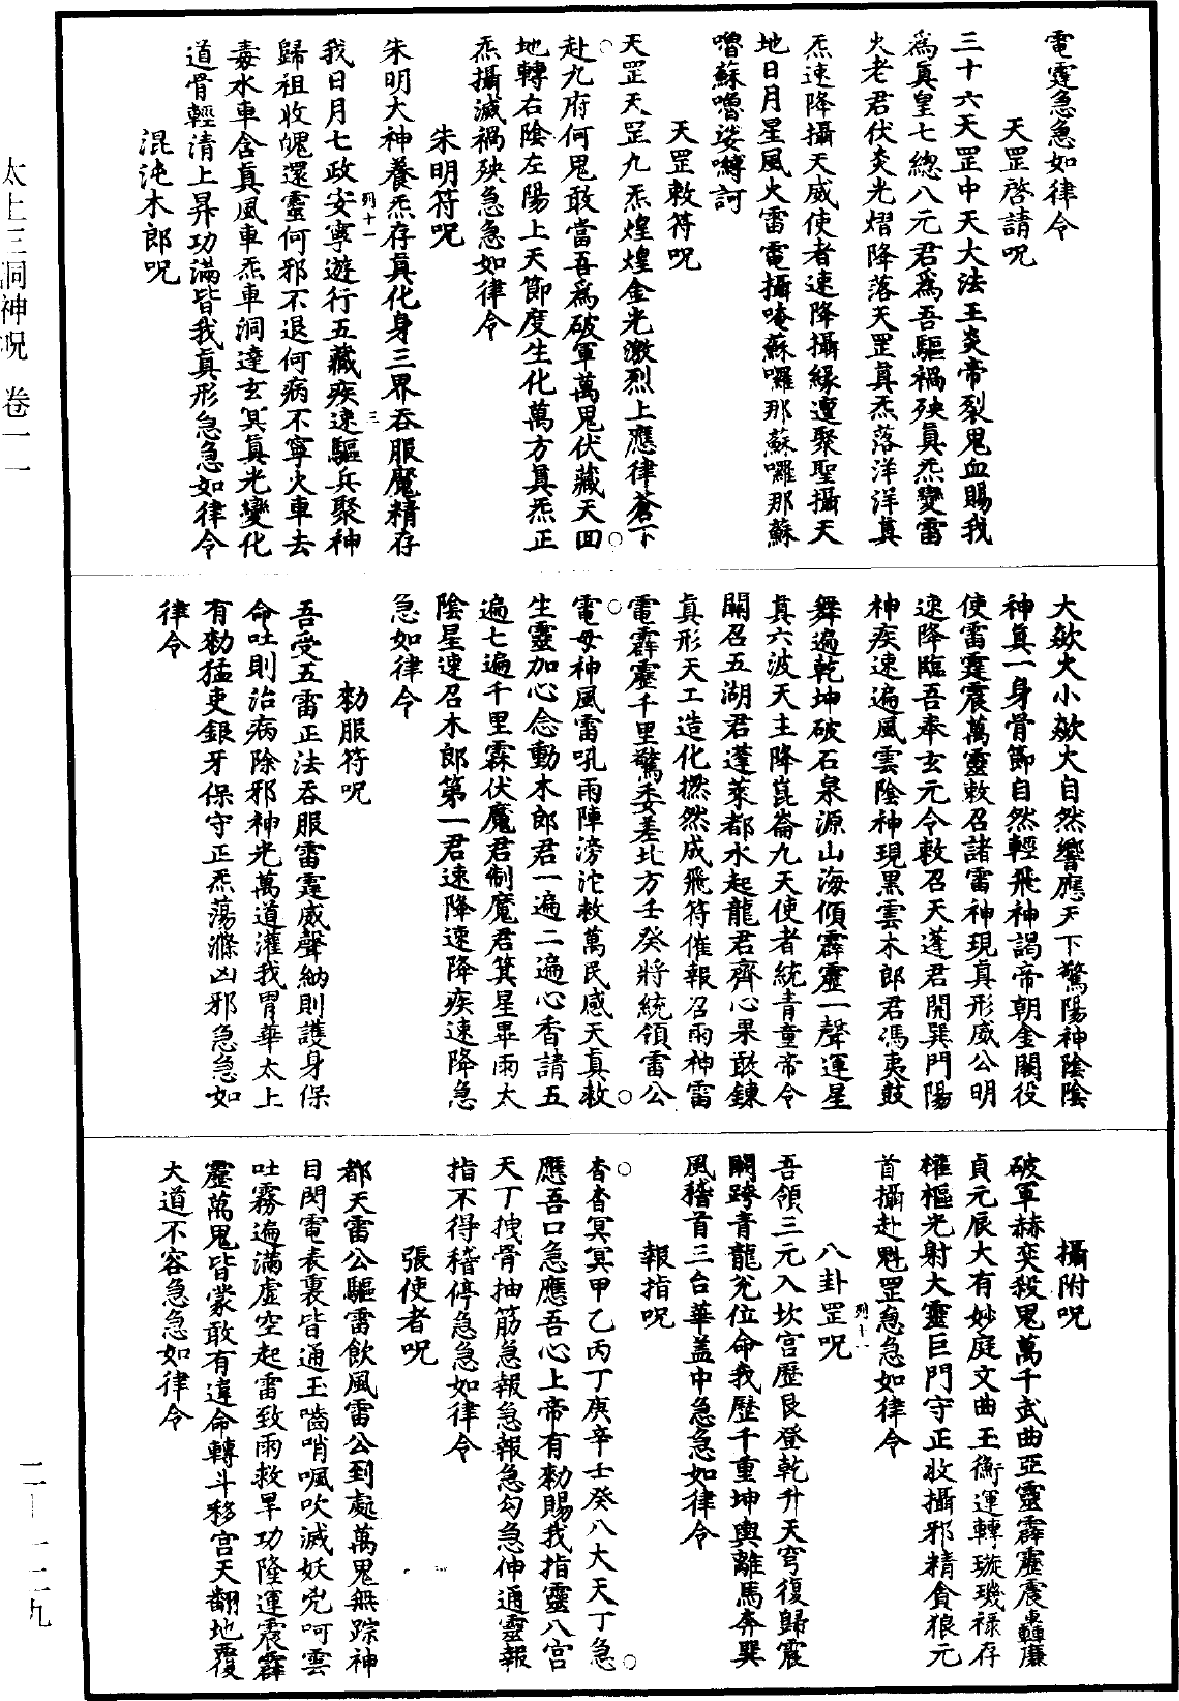 太上三洞神呪 卷一一
二—一二九
電霆急急如律令
天罡啓請呪
三十六天罡中天大法王炎帝裂鬼血賜我
爲眞皇七總八元君爲吾驅禍殃眞炁變雷
火老君伏炎光熠降落天罡眞炁落洋洋眞
炁速降攝天威使者速降攝緣遵聚聖攝天
地日月星風火雷電攝唵蘇囉那蘇囉那蘇
嚕蘇嚕娑嚩訶
天罡敕符呪
天罡天罡九炁煌煌金光激烈上應律蒼下
赴九府何鬼敢當吾爲破軍萬鬼伏藏天回
地轉右陰左陽上天節度生化萬方眞炁正
炁攝滅禍殃急急如律令
朱明符呪
朱明大神養炁存眞化身三界吞服魔精存
列十一
三
我日月七政安寧遊行五藏疾速驅兵聚神
歸祖收魄還靈何邪不退何病不寧火車去
毒水車含眞風車炁車洞達玄冥眞光變化
道骨輕清上昇功滿皆我眞形急急如律令
混沌木郎呪
大歘火小歘火自然響應天下驚陽神陰陰
神眞一身骨節自然輕飛神謁帝朝金闕役
使雷霆震萬靈敕召諸雷神現眞形威公明
速降臨吾奉玄元令敕召天蓬君開巽門陽
神疾速遍風雲陰神現黑雲木郎君馮夷鼓
舞遍乾坤破石泉源山海傾霹靂一聲運星
眞六波天主降崑崙九天使者統青童帝令
關召五湖君蓬萊都水起龍君齊心果敢鍊
眞形天工造化摠然成飛符催報召雨神雷
電霹靂千里驚委差北方壬癸將統領雷公
電母神風雷吼雨陣滂沱救萬民感天眞救
生靈加心念動木郎君一遍二遍心香請五
遍七遍千里霖伏魔君制魔君箕星畢雨大
陰星速召木郎第一君速降速降疾速降急
急如律令
勑服符呪
吾受五雷正法吞服雷霆威聲納則護身保
命吐則治病除邪神光萬道灌我胃華太上
有勑猛吏銀牙保守正炁蕩滌凶邪急急如
律令
攝附呪
破軍赫奕殺鬼萬千武曲亞靈霹靂震轟廉
貞元辰大有妙庭文曲玉衡運轉璇璣祿存
權樞光射大靈巨門守正收攝邪精貪狼元
首攝赴魁罡急急如律令
八卦罡呪
列十一
吾領三元入坎宮歷艮登乾升天穹復歸震
闕跨青龍兌位命我歷千重坤輿離馬奔巽
風稽首三台華蓋中急急如律令
報指呪
杳杳冥冥甲乙丙丁庚辛壬癸八大天丁急
應吾口急應吾心上帝有勑賜我指靈八宮
天丁拽骨抽筋急報急報急勾急伸通靈報
指不得稽停急急如律令
張使者呪
都天雷公驅雷飲風雷公到處萬鬼無踪神
目閃電表裏皆通玉嚙哨嘓吹滅妖兇呵雲
吐霧遍滿虛空起雷致雨救旱功隆運震霹
靂萬鬼皆蒙敢有違命轉斗移宮天翻地覆
大道不容急急如律令